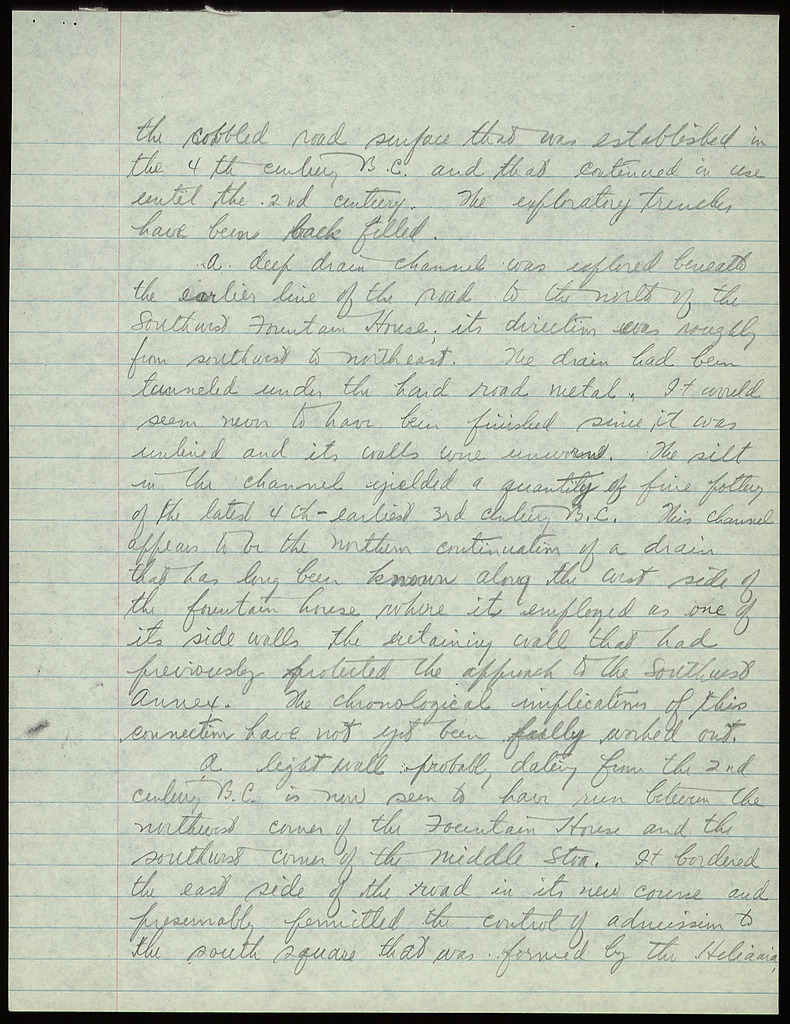 the cobbled road surface that was established in
the 4 th century B.C. and that continued in use
until the 2nd century. The exploratory trenches
have been back filled.
A deep drain channel was explored beneath
the earlier line of the road to the north of the
Southwest Fountain House; its direction was roughly
from southwest to northeast. The drain had been
tunneled under the hard road metal. It would
seem never to have been finished since it was
unlined and its walls were unworn. The silt
in the channel yielded a quantity of fine pottery
of the latest 4 th-earliest 3rd century B.C. This channel
appears to be the northern continuation of a drain
that has long been known along the west side of
the fountain house where it employed as one of
its side walls the retaining wall that had
previously protected the approach to the Southwest
Annex. The chronological implications of this
connection have not yet been fully worked out.
A light wall probably dating from the 2nd
century B.C. is now seen to have run between the
northwest corner of the Fountain House and the
southwest corner of the Middle Stoa. It bordered
the east side of the road in its new course and
presumably permitted the control of admission to
the south square that was formed by the Heliaia,